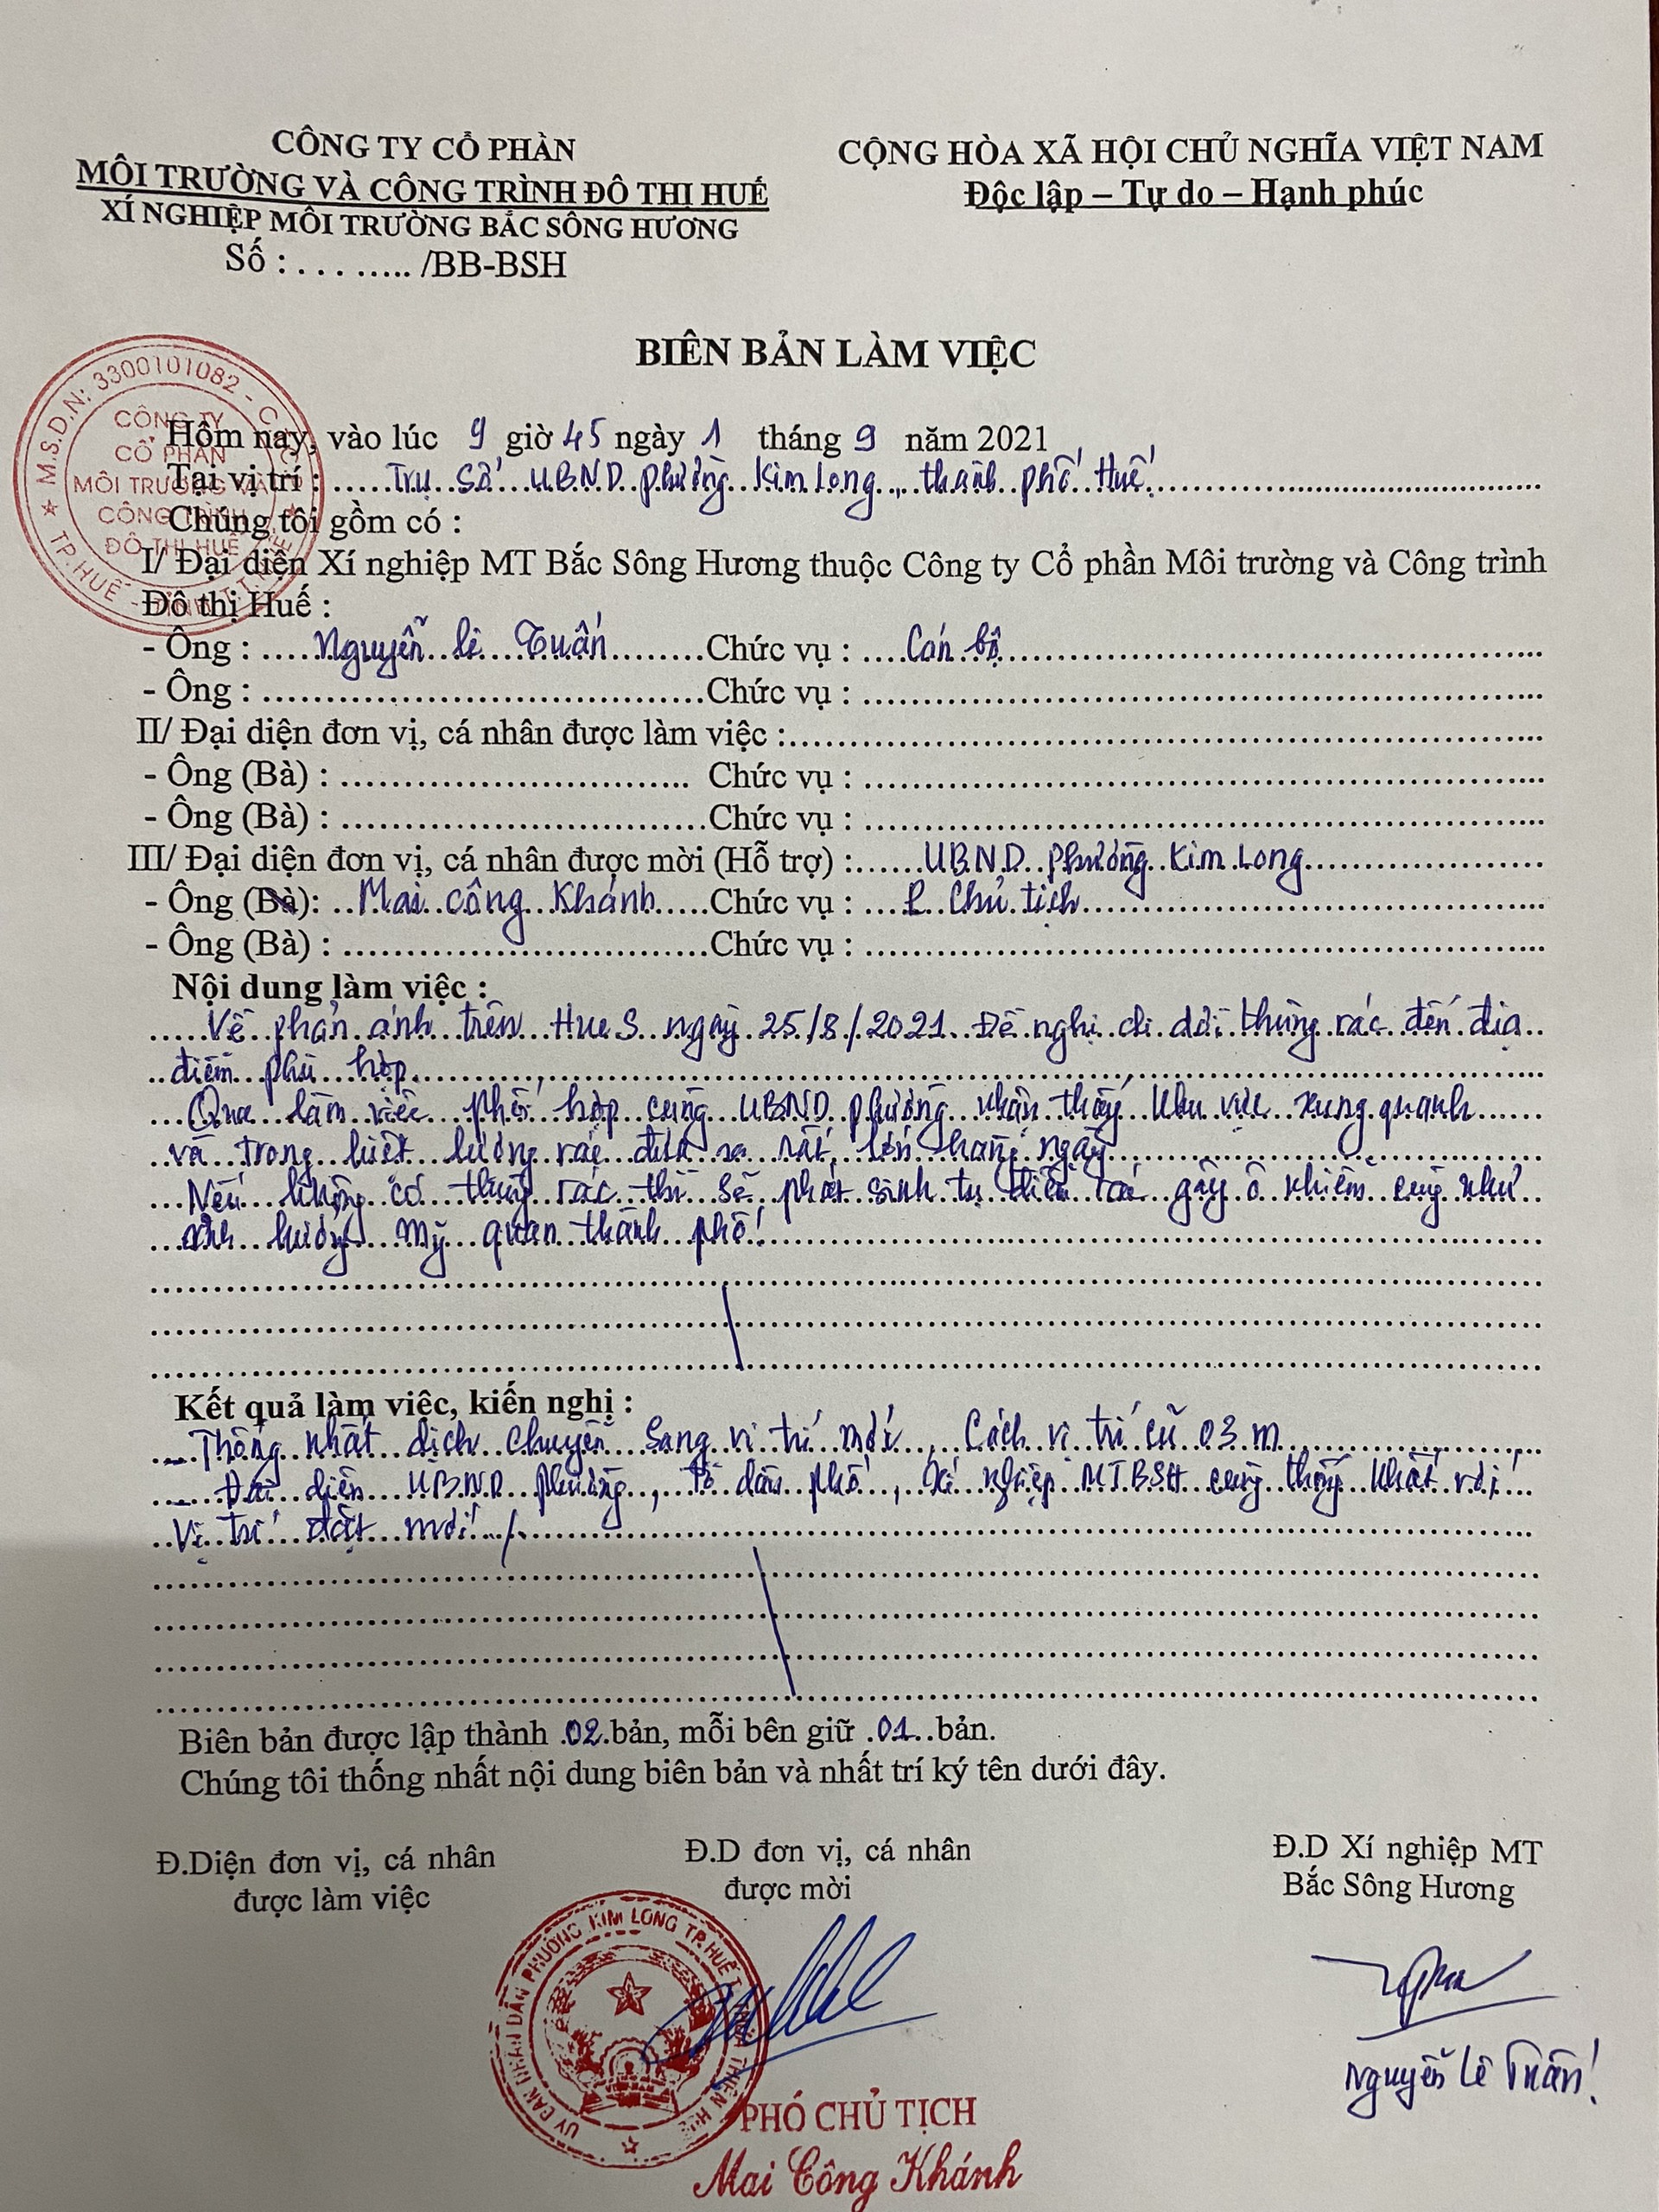 CÔNG TY CỔ PHẦN
MÔI TRƯỜNG VÀ CÔNG TRÌNH ĐÔ THỊ HUẾ
XÍ NGHIỆP MÔI TRƯỜNG BẮC SÔNG HƯƠNG
Số : . . . ..... /BB-BSH
CỘNG HÒA XÃ HỘI CHỦ NGHĨA VIỆT NAM
Độc lập – Tự do – Hạnh phúc
BIÊN BẢN LÀM VIỆC
M.S.D.N: 3300101082
CÔNG TY
CỔ PHẦN
MÔI TRƯỜNG VÀ
CÔNG TRÌNH
ĐÔ THỊ HUẾ
TP. HUẾ
Hôm nay, vào lúc 9 giờ 45 ngày 1 tháng 9 năm 2021
Tại vị trí : Trụ sở UBND phường Kim Long, thành phố Huế
Chúng tôi gồm có :
I/ Đại diện Xí nghiệp MT Bắc Sông Hương thuộc Công ty Cổ phần Môi trường và Công trình
Đô thị Huế :
- Ông : Nguyễn Lê Tuấn Chức vụ : Cán bộ
- Ông : Chức vụ :
II/ Đại diện đơn vị, cá nhân được làm việc :
- Ông (Bà) : Chức vụ :
- Ông (Bà) : Chức vụ :
III/ Đại diện đơn vị, cá nhân được mời (Hỗ trợ) : UBND phường Kim Long
- Ông (Bà): Mai Công Khánh Chức vụ : P. Chủ tịch
- Ông (Bà) : Chức vụ :
Nội dung làm việc :
Về phản ánh trên Hue S ngày 25/8/2021 Đề nghị di dời thùng rác đến địa
điểm phù hợp.
Qua làm việc phối hợp cùng UBND phường nhận thấy khu vực xung quanh
và trong kiệt lượng rác đưa ra rất lớn hàng ngày
Nếu không có thùng rác thì sẽ phát sinh tụ điểm rác gây ô nhiễm cũng như
ảnh hưởng mỹ quan thành phố!
Kết quả làm việc, kiến nghị :
- Thống nhất dịch chuyển sang vị trí mới, Cách vị trí cũ 03 m
- Đại diện UBND phường, Tổ dân phố, Xí nghiệp MTBSH cùng thống nhất với
Vị trí đặt mới ./.
Biên bản được lập thành 02 bản, mỗi bên giữ 01 bản.
Chúng tôi thống nhất nội dung biên bản và nhất trí ký tên dưới đây.
Đ.Diện đơn vị, cá nhân
được làm việc
Đ.D đơn vị, cá nhân
được mời
Đ.D Xí nghiệp MT
Bắc Sông Hương
ỦY BAN NHÂN DÂN PHƯỜNG KIM LONG TP. HUẾ T. THỪA THIÊN HUẾ
VIỆT NAM
PHÓ CHỦ TỊCH
Mai Công Khánh
Nguyễn Lê Tuấn